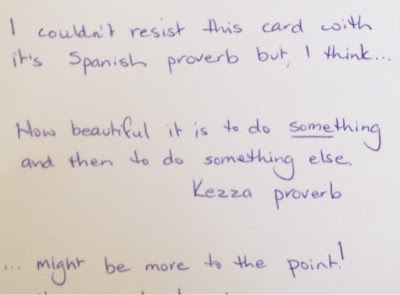 I couldn't resist this card with
it's Spanish proverb but, I think...
How beautiful it is to do something
and then to do something else.
Kezza proverb
... might be more to the point!